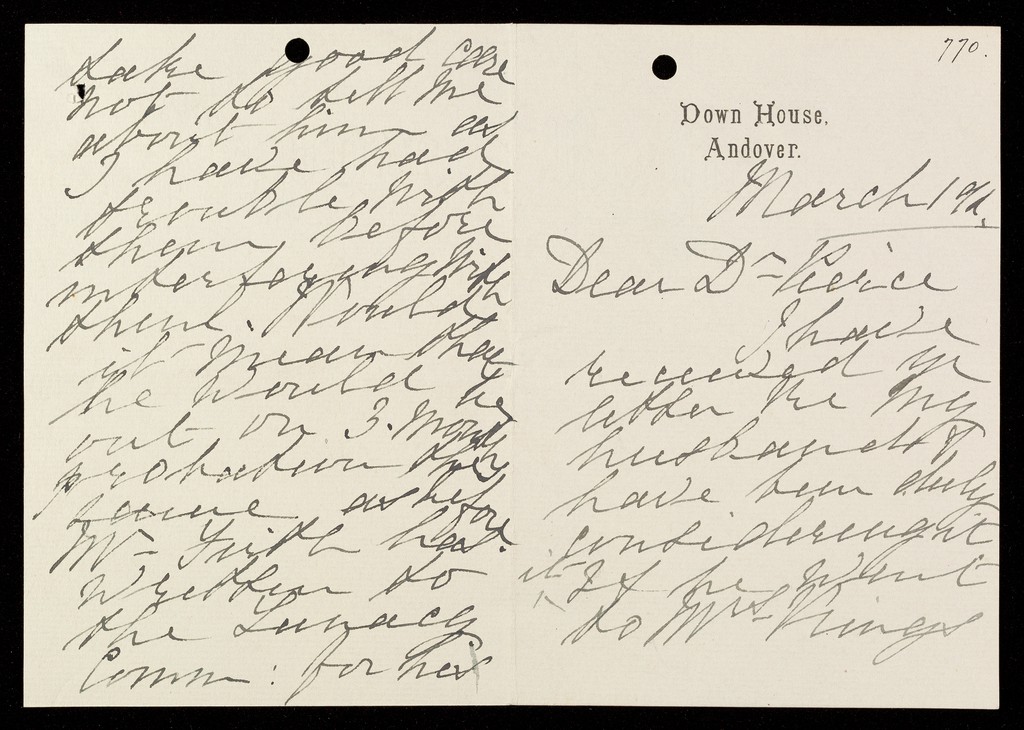 770.
Down House,
Andover.
March 19th.
Dear Dr Pierce
I have
received yr
letter re my
husband &
have been duly
considering it
it If he went
to Mrs Kings
take good care
not to tell me
about him as
I have had
trouble with
them before
interfering with
them. Would
it mean that
he would be
out on 3. Month
probation the
same as before.
Mr Firth has
written to
the Lunacy
Comm: for his